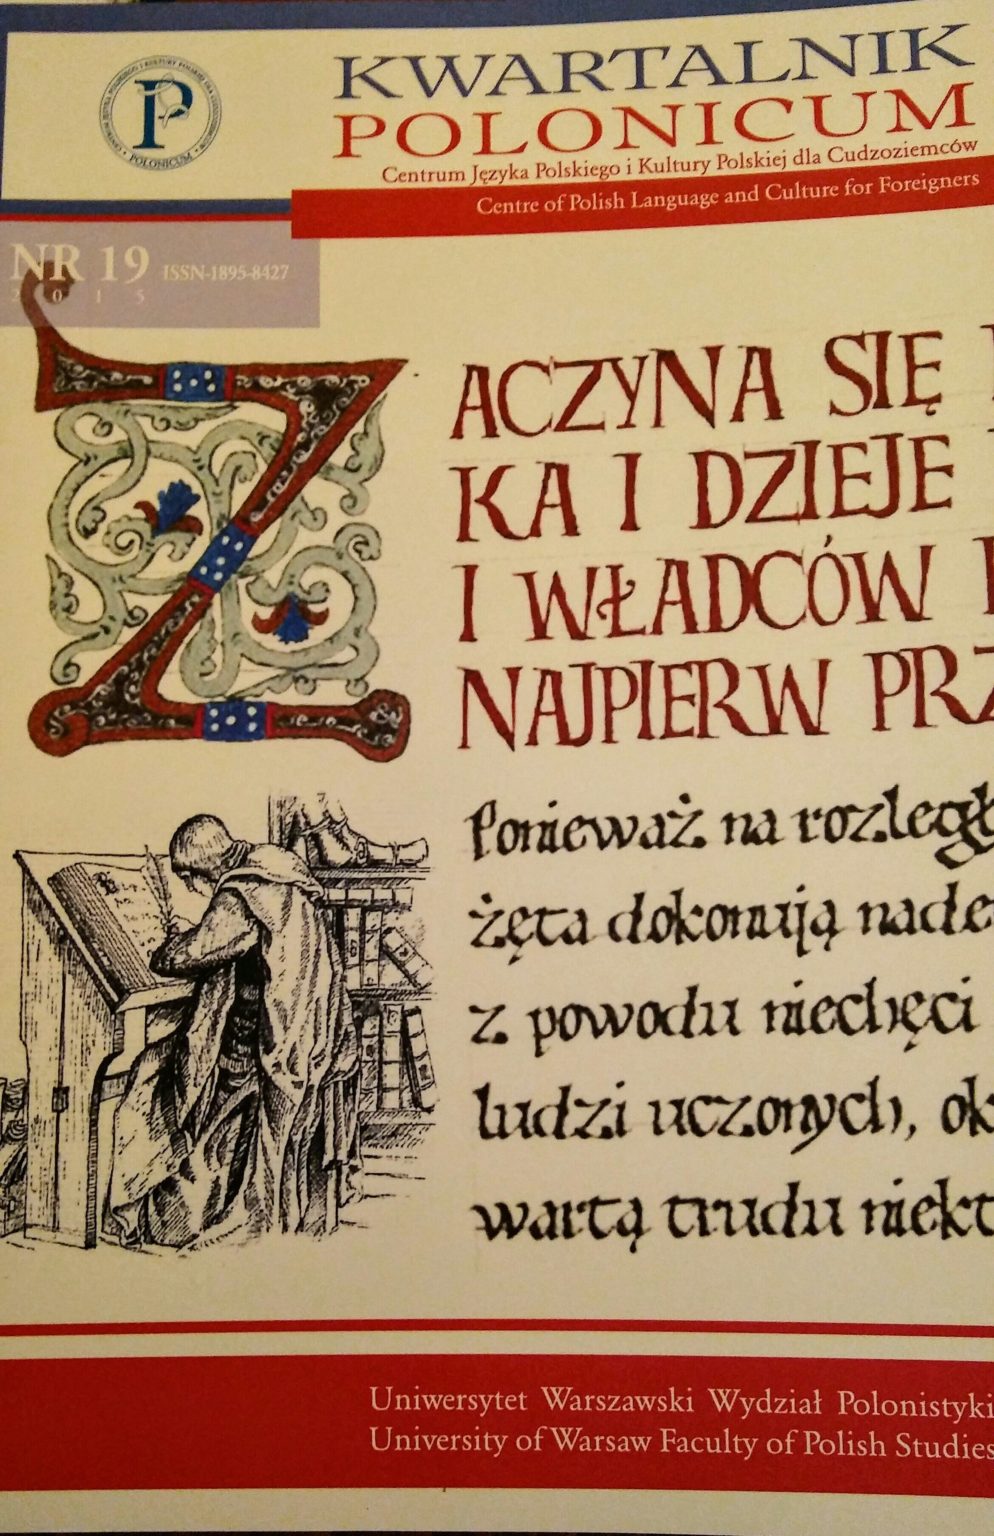 KWARTALNIK
POLONICUM
Centrum Języka Polskiego i Kultury Polskiej dla Cudzoziemców
Centre of Polish Language and Culture for Foreigners
P
CENTRUM JĘZYKA POLSKIEGO I KULTURY POLSKIEJ DLA CUDZOZIEMCÓW
POLONICUM
NR 19 ISSN-1895-8427
2015
ZACZYNA SIĘ
KA I DZIEJE
I WŁADCÓW
NAJPIERW PRZ
Ponieważ na rozległ
żęta dokonują nade
z powodu niechęci
ludzi uczonych, ok
wartą trudu niekt
Uniwersytet Warszawski Wydział Polonistyki
University of Warsaw Faculty of Polish Studies